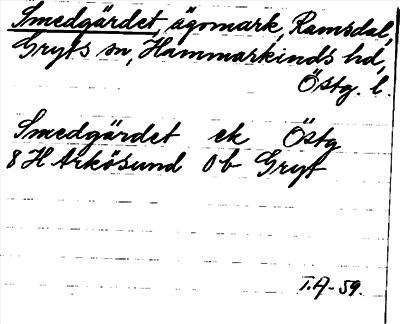 Smedgärdet, ägomark, Ramsdal,
Gryts sn, Hammarkinds hd,
Östg. l.
Smedgärdet ek Östg
8H Arkösund 0b Gryt
T.A-59.